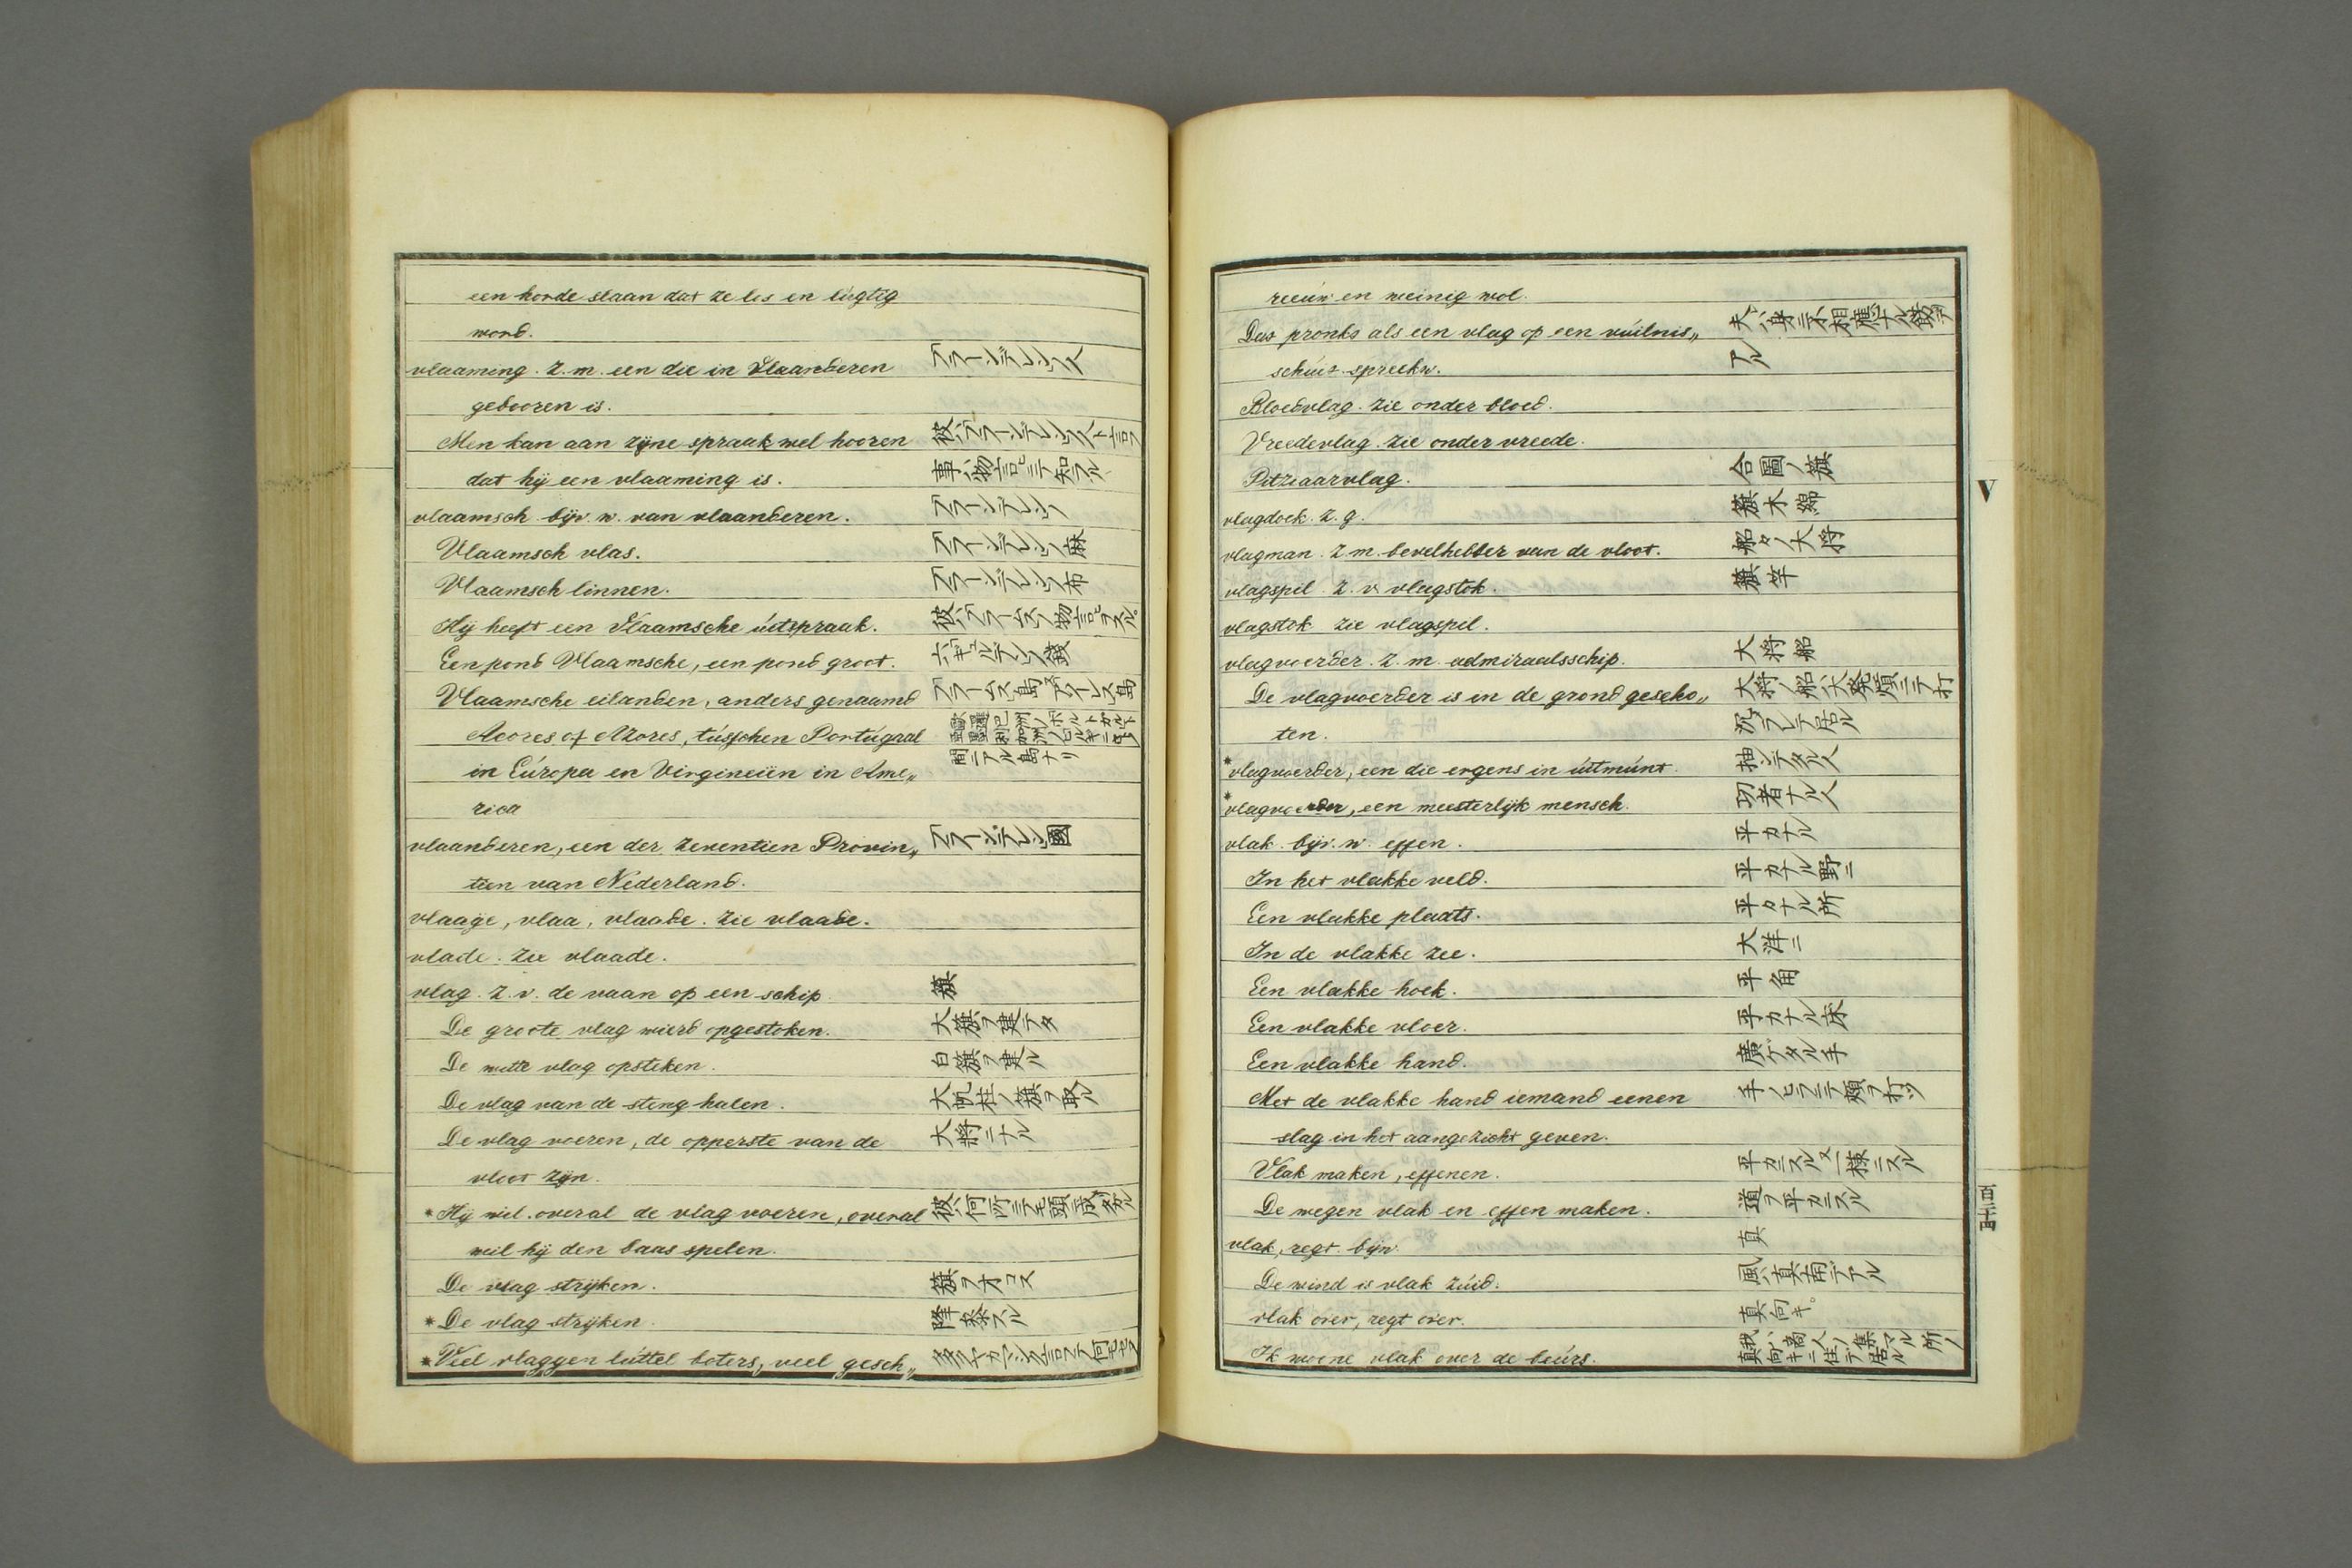 een horde slaan dat ze los en lúgtig
word.
vlaaming. z. m. een die in Vlaanderen フラーンデレンノ人
gebooren is.
Men kan aan zijne spraak wel hooren 彼ハフラーンデレンノ人ト言フ
dat hij een vlaaming is. 事ハ物言ヒニテ知ラル
vlaamsch bijv. w. van vlaanderen. フラーンデレンノ
Vlaamsch vlas. フラーンデレンノ麻
Vlaamsch linnen. フラーンデレンノ布
Hij heeft een Vlaamsche úitspraak. 彼ハフラームスノ物言ヒヲスル
Een pond Vlaamsche, een pond groot.
Vlaamsche eilanden, anders genaamd
Acores of Azores, tússchen Portúgaal
in Európa en Virgineiën in Ame„ 間ニアル島ナリ
rica
vlaanderen, een der zeventien Provin„ フラーンデレン國
tien van Nederland.
vlaage, vlaa, vlaade. zie vlaade.
vlade. zie vlaade.
vlag. z. v. de vaan op een schip 旗
De groote vlag wierd opgestoken. 大旗ヲ建テタ
De witte vlag opsteken. 白旗ヲ建ル
De vlag van de steng halen. 大帆柱ノ旗ヲ取ル
De vlag voeren, de opperste van de 大将ニナル
vloot zijn.
* Hij wil overal de vlag voeren, overal
wil hij den baas spelen.
De vlag strijken. 旗ヲオロス
* De vlag strijken. 降参スル
* Veel vlaggen lúttel boters, veel gesch„
reeúw en weinig wol.
Dat pronkt als een vlag op een vúilnis„ 夫ハ身ニ不相應ナル餝デ
schúit. spreekw. アル
Bloedvlag. zie onder bloed.
Vreedevlag. zie onder vreede.
Pitziaarvlag. 合圖ノ旗
vlagdoek. z. g. 旗木綿
vlagman. z. m. bevelhebber van de vloot. 船々ノ大将
vlagspil. z. v. vlagstok. 旗竿
vlagstok zie vlagspil.
vlagvoerder. z. m. admiraalsschip. 大将船
De vlagvoerder is in de grond gescho„ 大将ノ船ハ大發熕ニテ打
ten. 沈ラレテ居ル
* vlagvoerder, een die ergens in úitmúnt. 抽ンデタル人
* vlagvoerder, een meesterlijk mensch. 功者ナル人
vlak. bijv. w. effen. 平カナル
In het vlakke veld. 平カナル野ニ
Een vlakke plaats. 平カナル所
In de vlakke zee. 大洋ニ
Een vlakke hoek. 平角
Een vlakke vloer. 平カナル床
Een vlakke hand. 廣ゲタル手
Met de vlakke hand iemand eenen 手ノヒラニテ頬ヲ打ツ
slag in het aangezicht geven.
Vlak maken, effenen. 平カニスル又一様ニスル
De wegen vlak en effen maken. 道ヲ平カニスル
vlak, regt. bijw. 真
De wind is vlak zúid. 風ハ真南デアル
vlak over, regt over. 真向キ
Ik woone vlak over de beúrs. 我ハ商人ノ集マル所ノ真向キニ住デ居ル
V